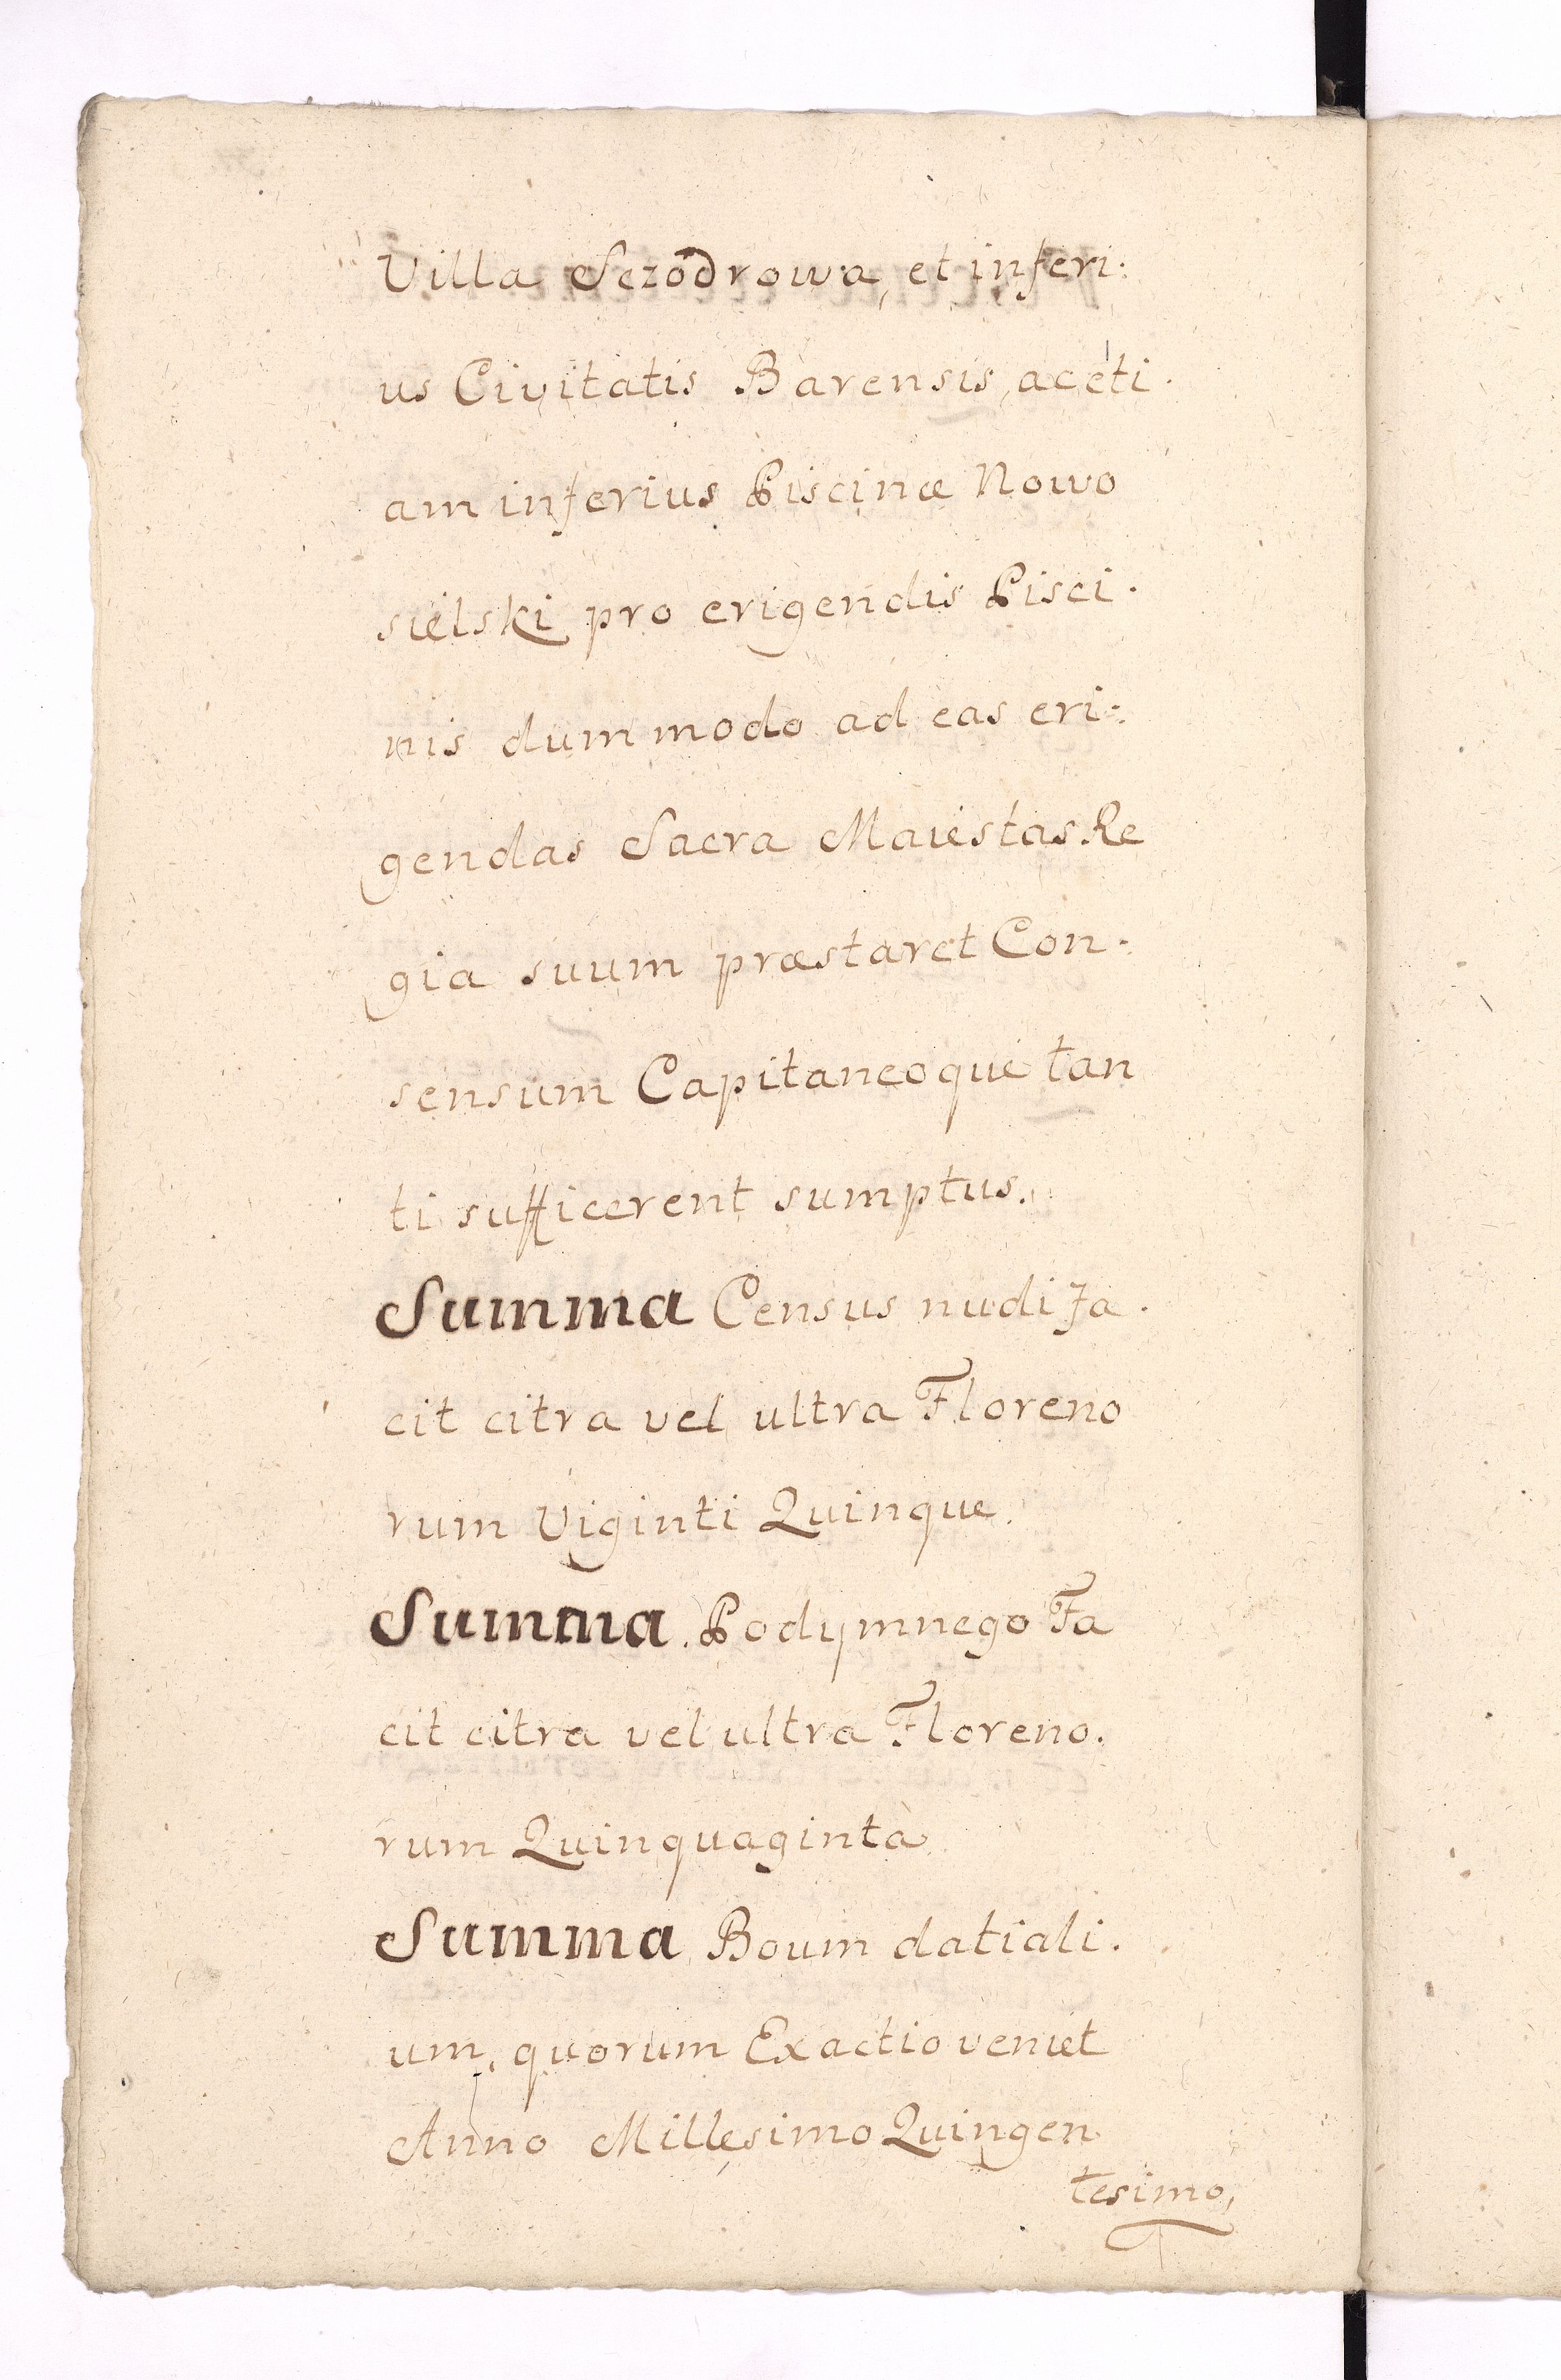 Villa Sczodrowa, et inferi:
us Civitatis Barensis, aceti.
am inferius Piscinæ Nowo
sielski pro erigendis Pisci.
nis dummodo ad eas eri:
gendas Sacra Maiestas Re
gia suum præstaret Con.
sensum Capitaneoque tan
ti sufficerent sumptus.
Summa Census nudi fa.
cit citra vel ultra Floreno
rum Viginti Quinque.
Summa Podymnego Fa
cit citra vel ultra Floreno.
rum Quinquaginta
Summa Boum datiali.
um, quorum Exactio veniet
Anno Millesimo Quingen
tesimo,